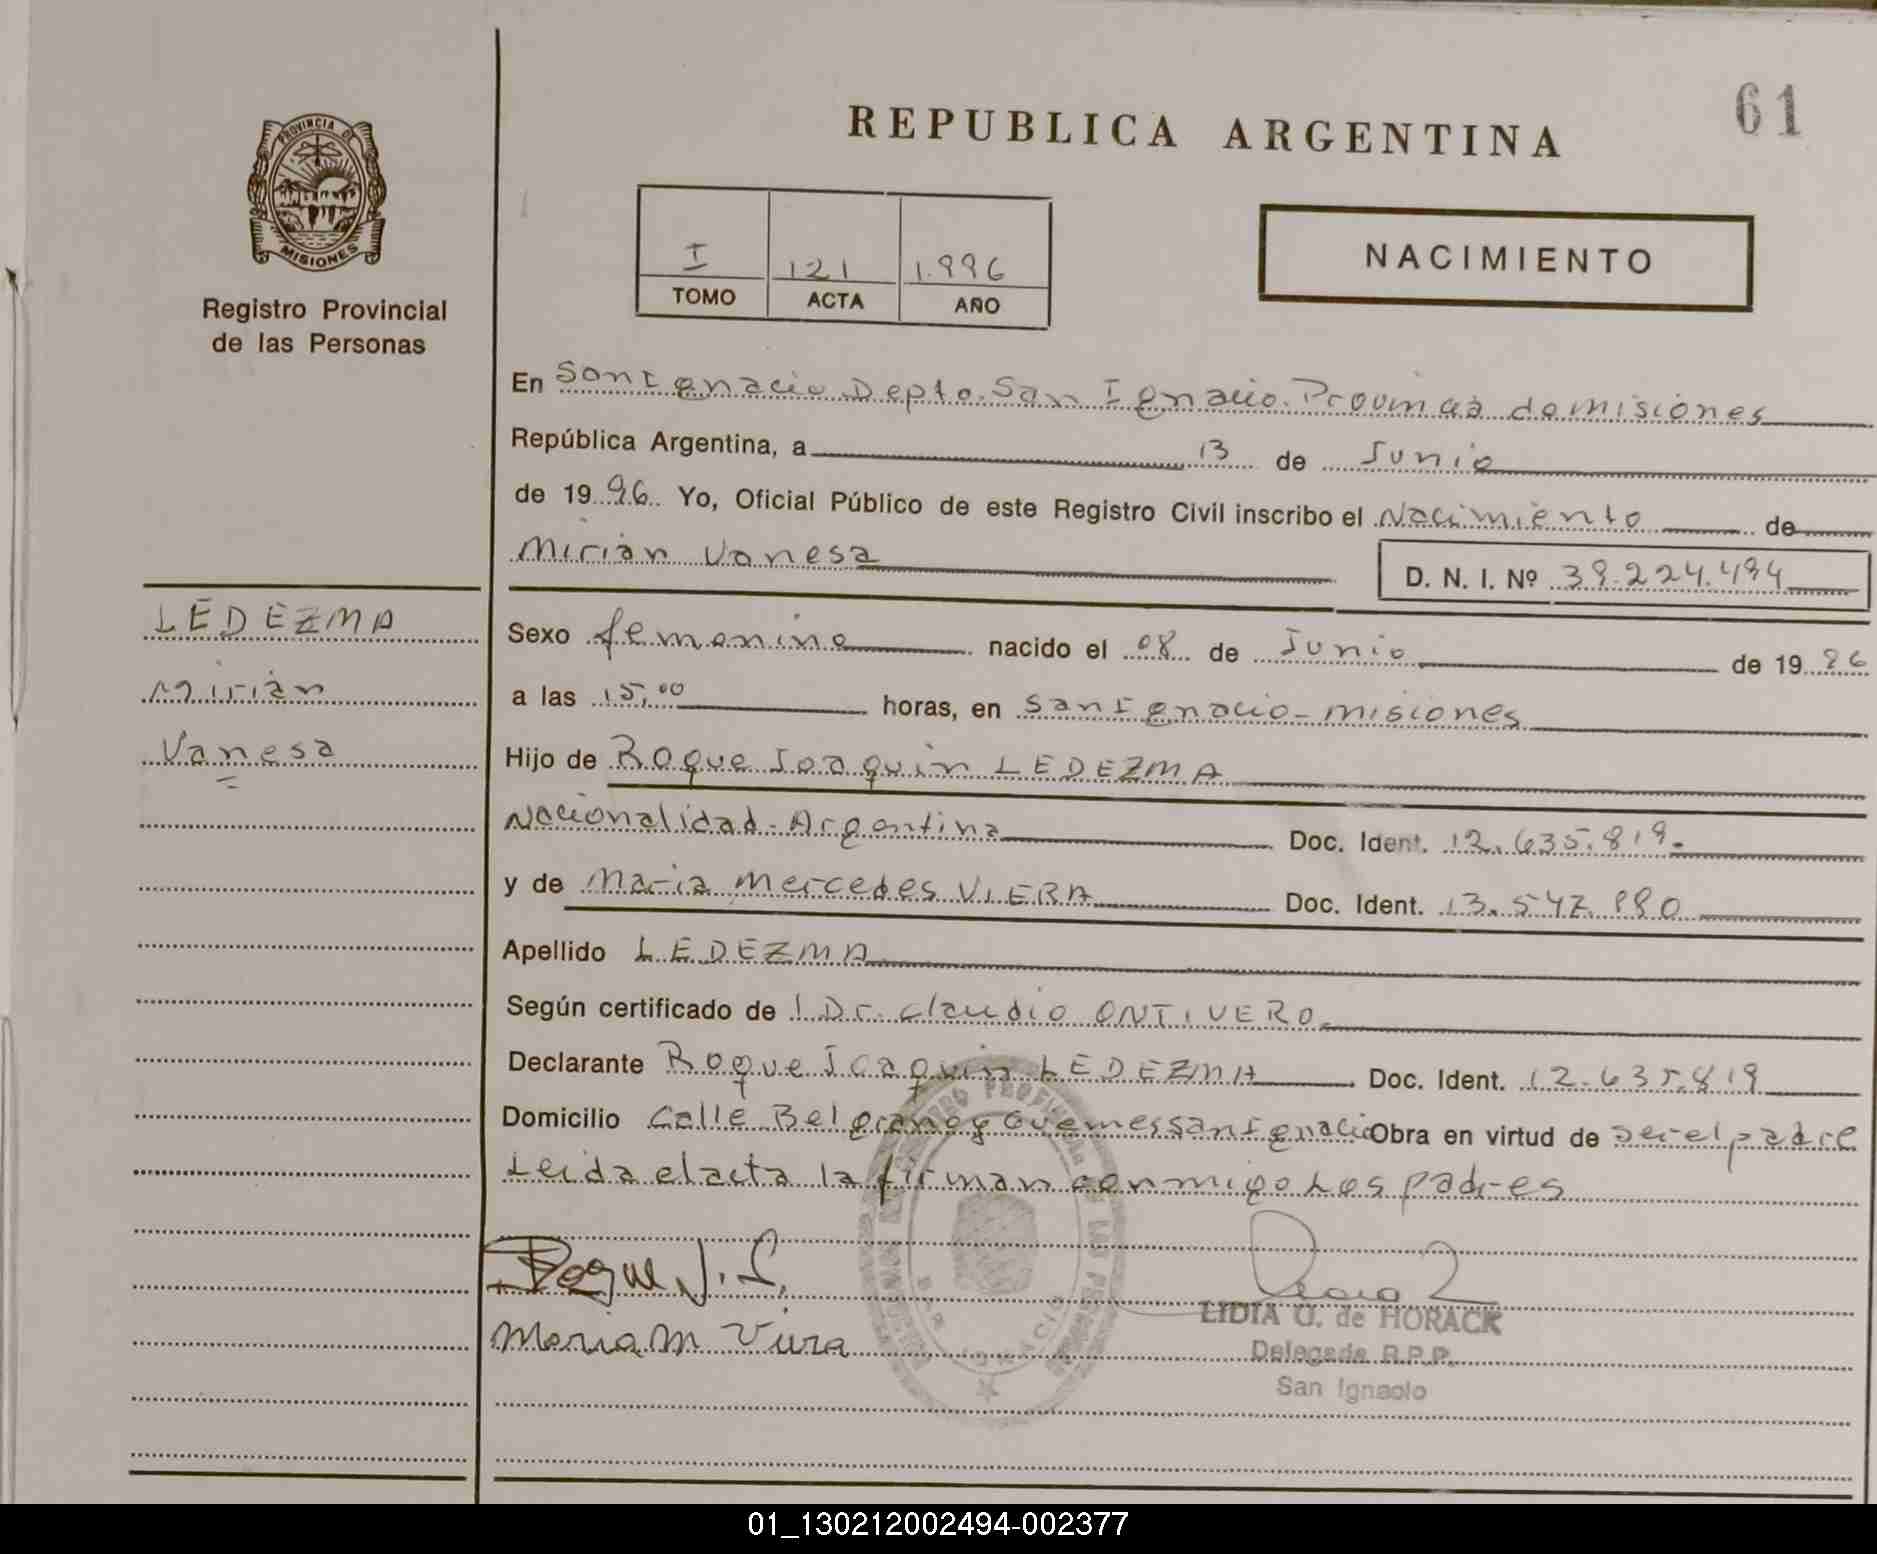 61
REPUBLICA ARGENTINA
PROVINCIA DE
MISIONES
Registro Provincial
de las Personas
I 121 1.996
TOMO ACTA AÑO
NACIMIENTO
En San Ignacio Depto. San Ignacio. Provincia de misiones
República Argentina, a 13 de Junio
de 1996 Yo, Oficial Público de este Registro Civil inscribo el Nacimiento de
Mirian Vanesa D. N. I. Nº 39.224.494
LEDEZMA
Mirian
Vanesa
Sexo femenino nacido el 08 de Junio de 1996
a las 15,00 horas, en San Ignacio - misiones
Hijo de Roque Joaquin LEDEZMA
Nacionalidad - Argentina Doc. Ident. 12.635.819.
y de Maria Mercedes VIERA Doc. Ident. 13.547.
Apellido LEDEZMA
Según certificado de l Dr. Claudio ONTIVERO
Declarante Roque Joaquin LEDEZMA Doc. Ident. 12.635.819
Domicilio Calle Belgrano y Guemes San Ignacio Obra en virtud de ser el padre
Leida el acta la firman conmigo Los padres
Roque J. L.
Maria M Viera
LIDIA O. de HORACK
Delegada R.P.P.
San Ignacio
01_130212002494-002377